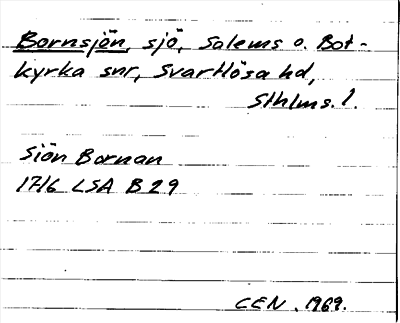 Bornsjön, sjö, Salems o. Bot-
kyrka snr, Svartlösa hd,
Sthlms. l.
Siön Bornan
1716 LSA B29
CEN. 1969.